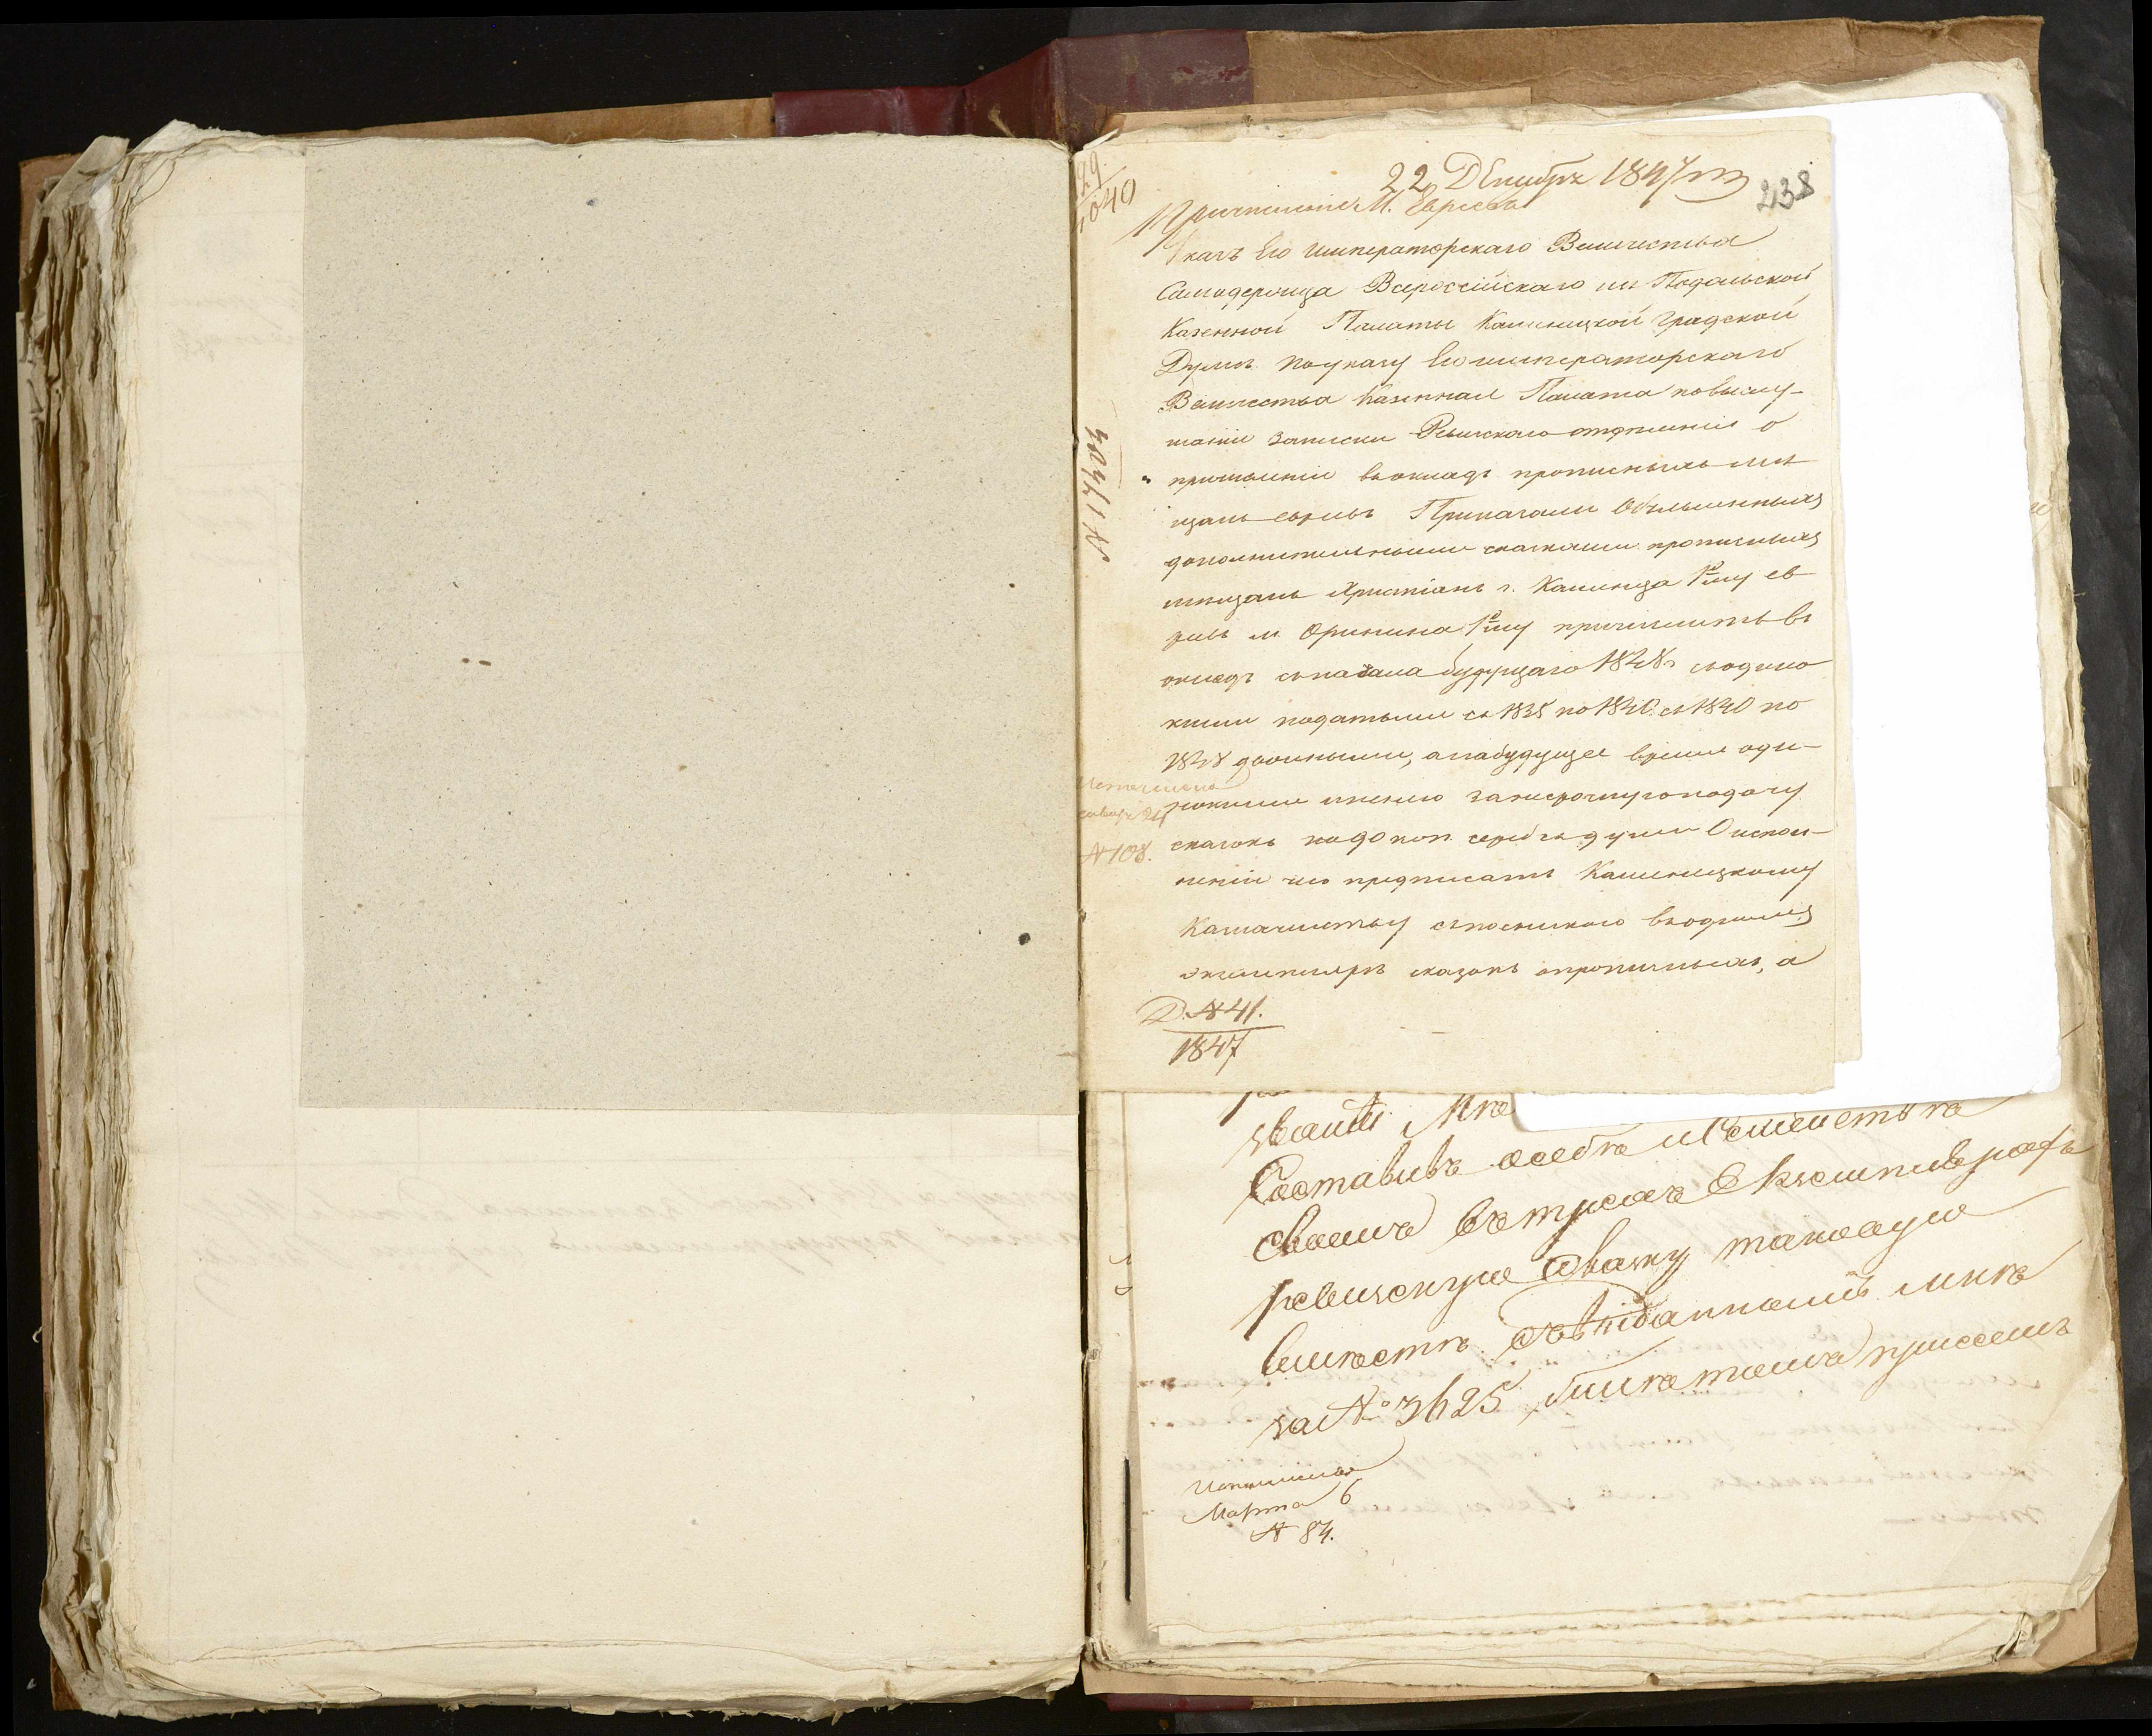 29
1040
22 Декабря 1847 го
238
Причисление М. Евреевъ
Указъ Его Императорскаго Величества
Самодержца Всероссійскаго изъ Подольской
Казенной Палаты Каменецкой Градской
Думѣ По указу Его императорскаго
Величества Казенная Палата по выслу-
шаніи записки Ревизскаго отдѣленія о
причисленіи въ окладъ прописныхъ мѣ
щанъ евреевъ Приказали Объявленныхъ
дополнительными сказками прописныхъ
мѣщанъ Христіанъ г. Каменца 1ну ев
реевъ м. Оринина 1ну причислить въ
окладъ съ начала будущаго 1848 г. съ одино
кими податьми съ 1835 по 1840. съ 1840 по
1848 двойными, а на будущее время оди-
нокими и пенею за несрочную подачу
сказокъ по 90 коп. сереб. съ души О испол-
неніи чего предписать Каменецкому
Казначейству съ посылкою
экземпляръ сказокъ о прописныхъ, а
N 17404
Исполнено
Января 24
N 108.
Д. N 41.
1847
званіи Мнѣ
Составивъ о себѣ и Семействѣ
своемъ въ трехъ Екземплярахъ
ревизскую Сказку таковую
вмѣстѣ
за № 3625 билетомъ при семъ
Исполнено
Марта 6
N 84.